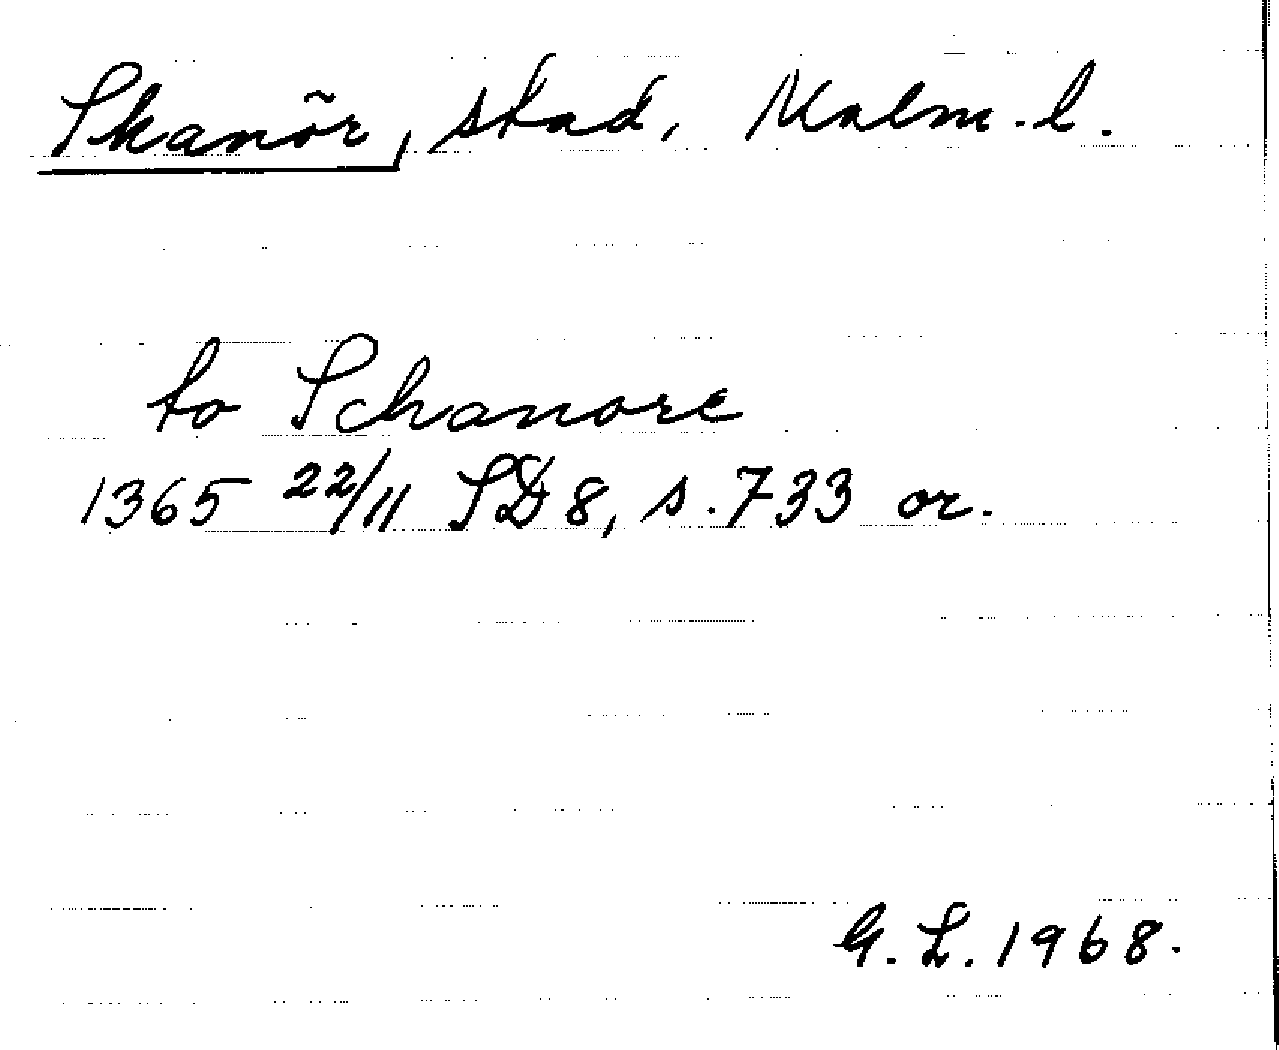 Skanör, stad, Malm. l.
to Schanore
1365 22/11 SD 8, s. 733 or.
G. L. 1968.